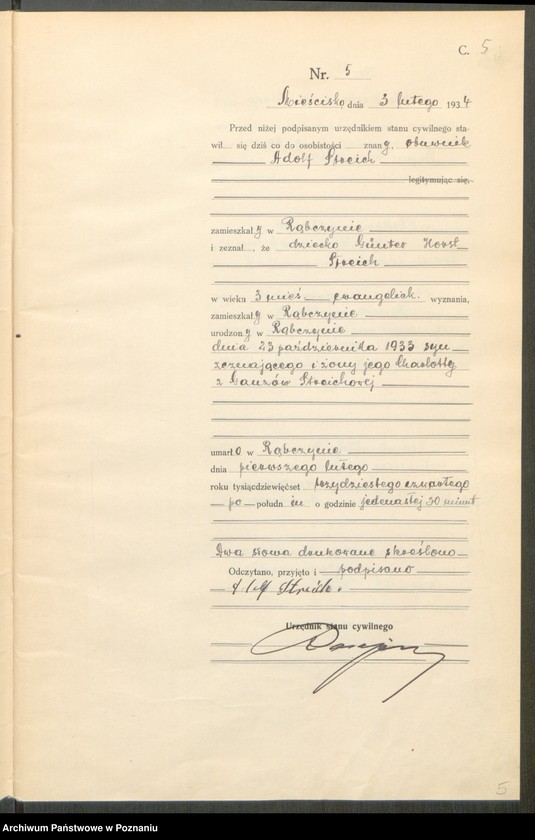 C. 5
Nr. 5
Mieścisko dnia 3 lutego 1934
Przed niżej podpisanym urzędnikiem stanu cywilnego sta-
wił się dziś co do osobistości znany, obuwnik
Adolf Streich
legitymując się,
zamieszkały w Rąbczynie
i zeznał, że dziecko Günter Horst
Streich
w wieku 3 mieś ewangelick. wyznania,
zamieszkały w Rąbczynie
urodzony w Rąbczynie
dnia 23 października 1933 syn
zeznającego i żony jego Charlotty
z Streichowej
umarło w Rąbczynie
dnia pierwszego lutego
roku tysiącdziewięćset trzydziestego czwartego
po połudn iu o godzinie jedenastej 30 minut
Dwa słowa drukowane skreślono
Odczytano, przyjęto i podpisano
Streich.
Urzędnik stanu cywilnego
5
Archiwum Państwowe w Poznaniu